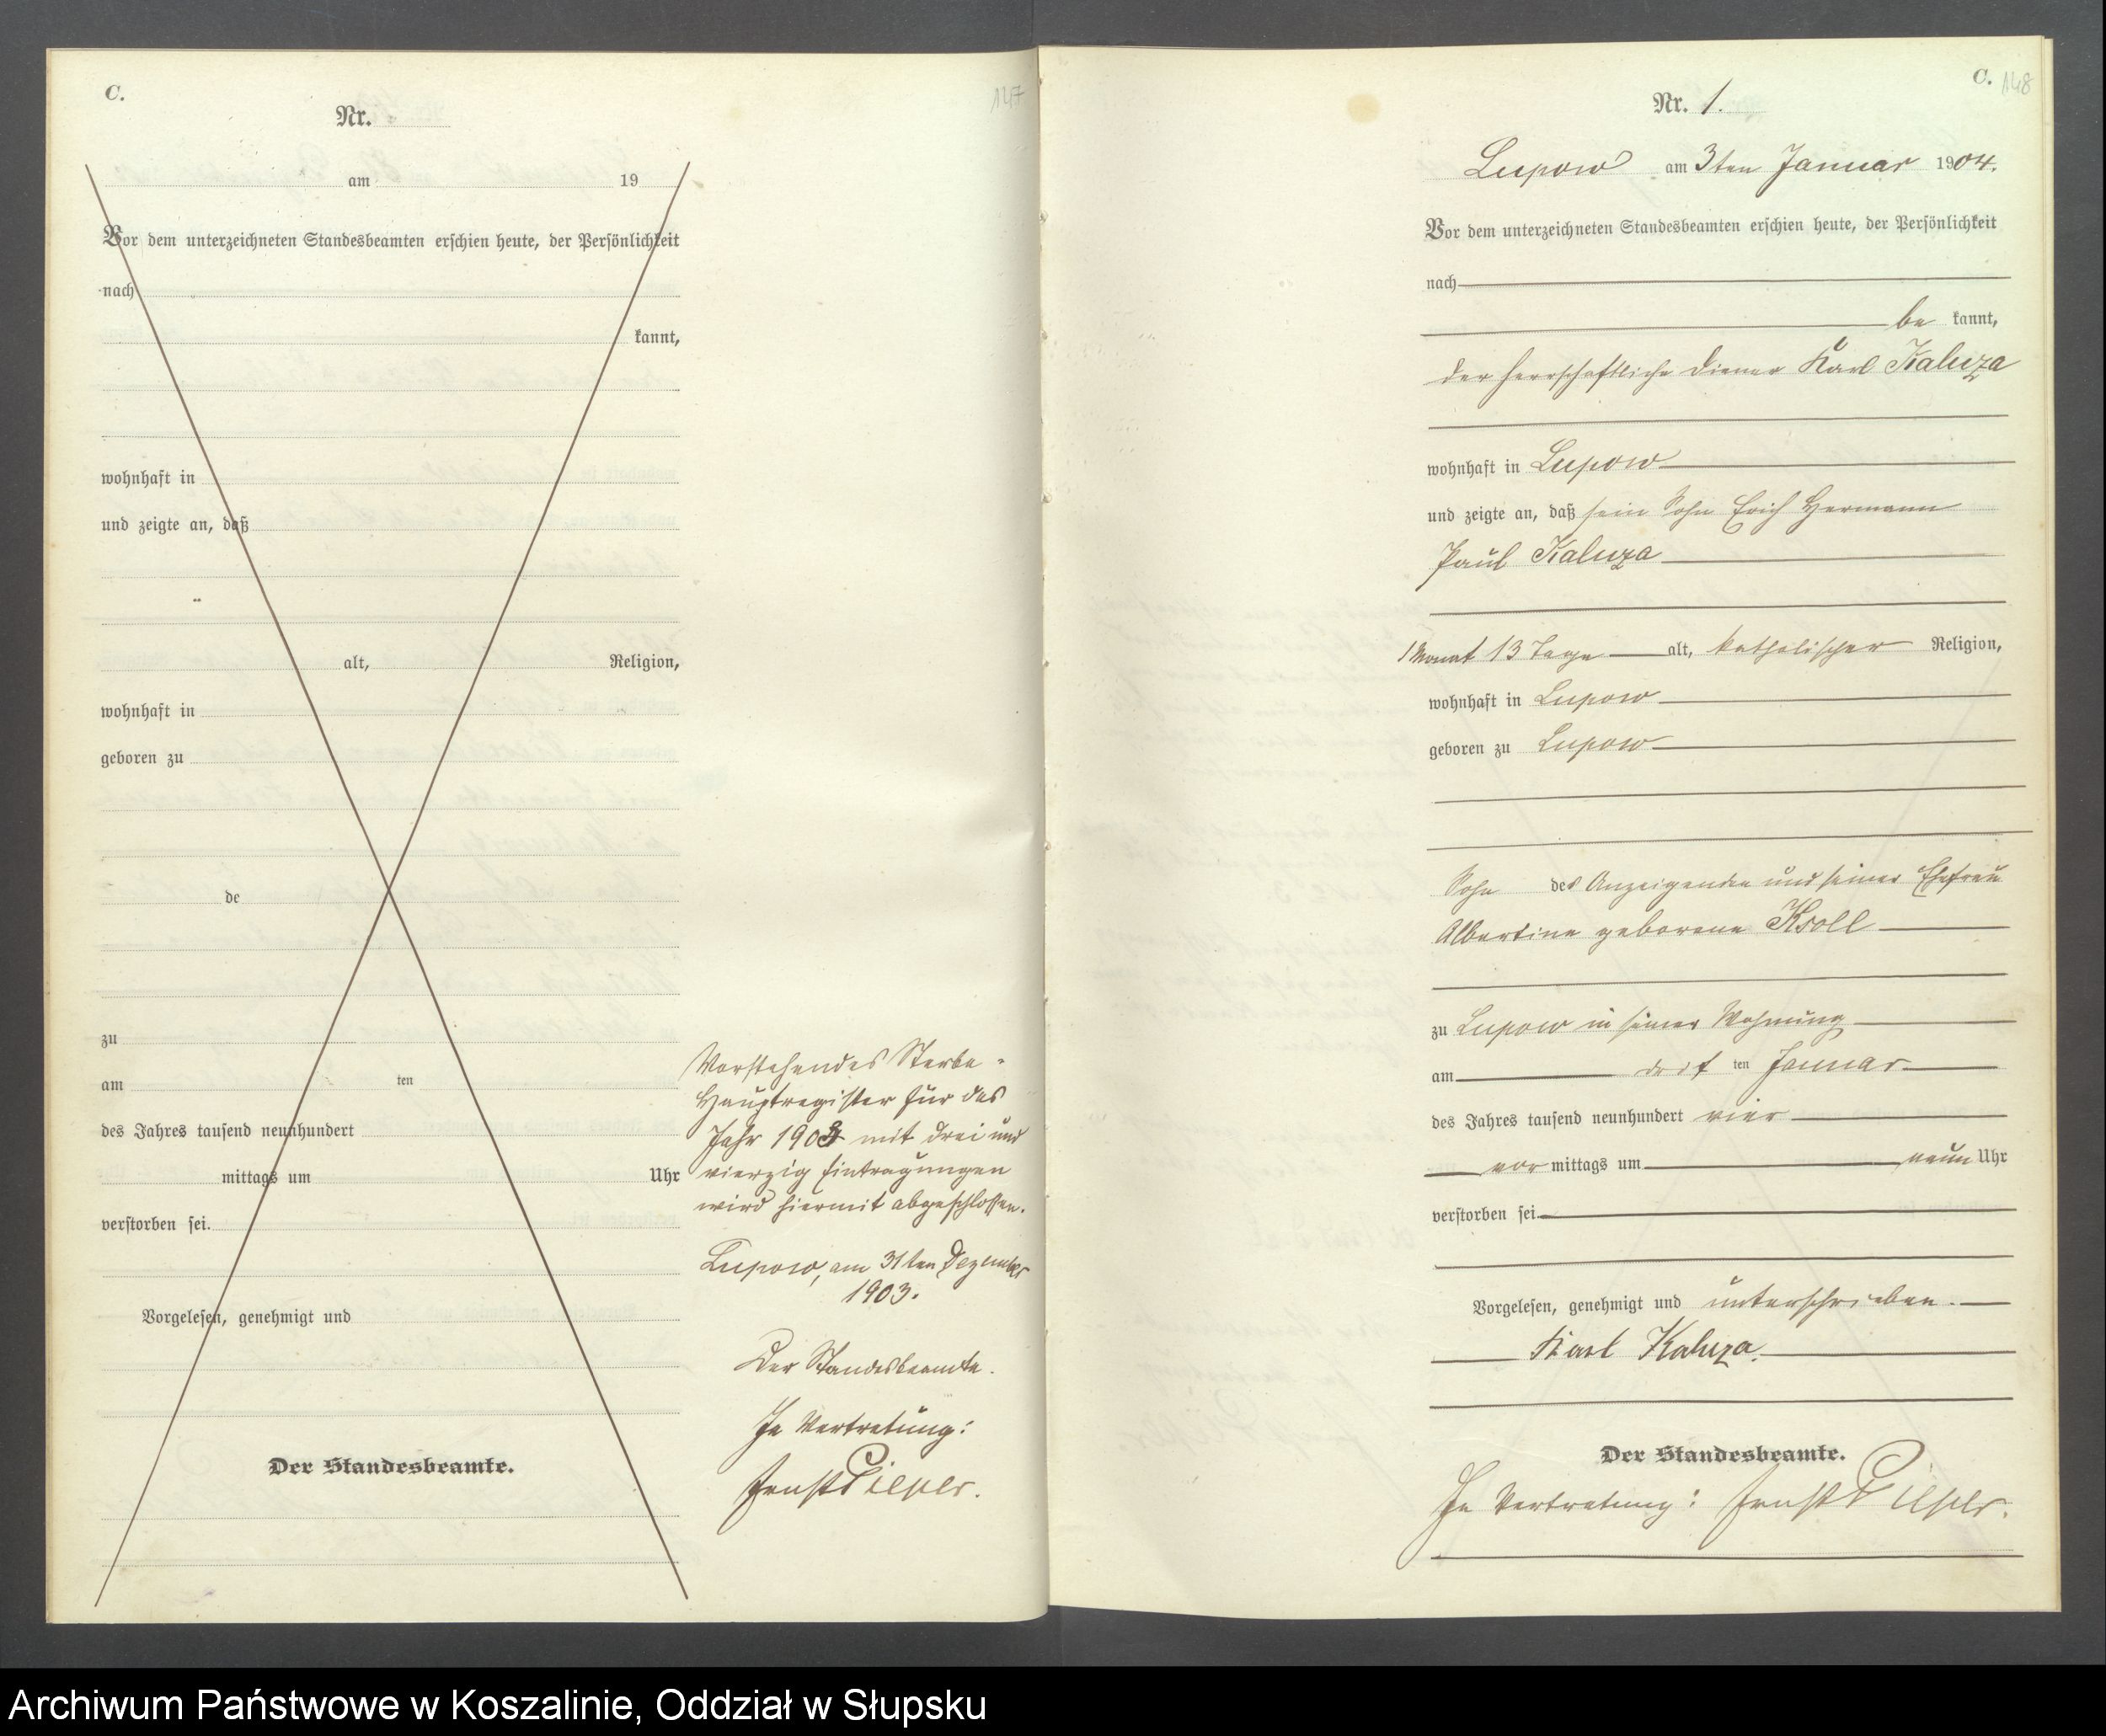 C.
147
Nr.
am 19
Vor dem unterzeichneten Standesbeamten erschien heute, der Persönlichkeit
nach
kannt,
wohnhaft in
und zeigte an, daß
alt, Religion,
wohnhaft in
geboren zu
de
zu
am ten
des Jahres tausend neunhundert
mittags um Uhr
verstorben sei.
Vorgelesen, genehmigt und
Der Standesbeamte.
Vorstehendes Sterbe-
Hauptregister für das
Jahr 1903 mit drei und
vierzig Eintragungen
wird hiermit abgeschlossen.
Lupow, am 31ten Dezember
1903.
Der Standesbeamte.
In Vertretung:
Ernst Pieper.
C.
148
Nr. 1.
Lupow am 3ten Januar 1904.
Vor dem unterzeichneten Standesbeamten erschien heute, der Persönlichkeit
nach
be kannt,
der herrschaftliche Diener Karl Kaluza
wohnhaft in Lupow
und zeigte an, daß sein Sohn Erich Hermann
Paul Kaluza
1 Monat 13 Tage alt, katholischer Religion,
wohnhaft in Lupow
geboren zu Lupow
Sohn des Anzeigenden und seiner Ehefrau
Albertine geborene Kroll
zu Lupow in seiner Wohnung
am ten Januar
des Jahres tausend neunhundert vier
vor mittags um neun Uhr
verstorben sei.
Vorgelesen, genehmigt und unterschrieben.
Karl Kaluza.
Der Standesbeamte.
In Vertretung: Ernst Pieper.
Archiwum Państwowe w Koszalinie, Oddział w Słupsku